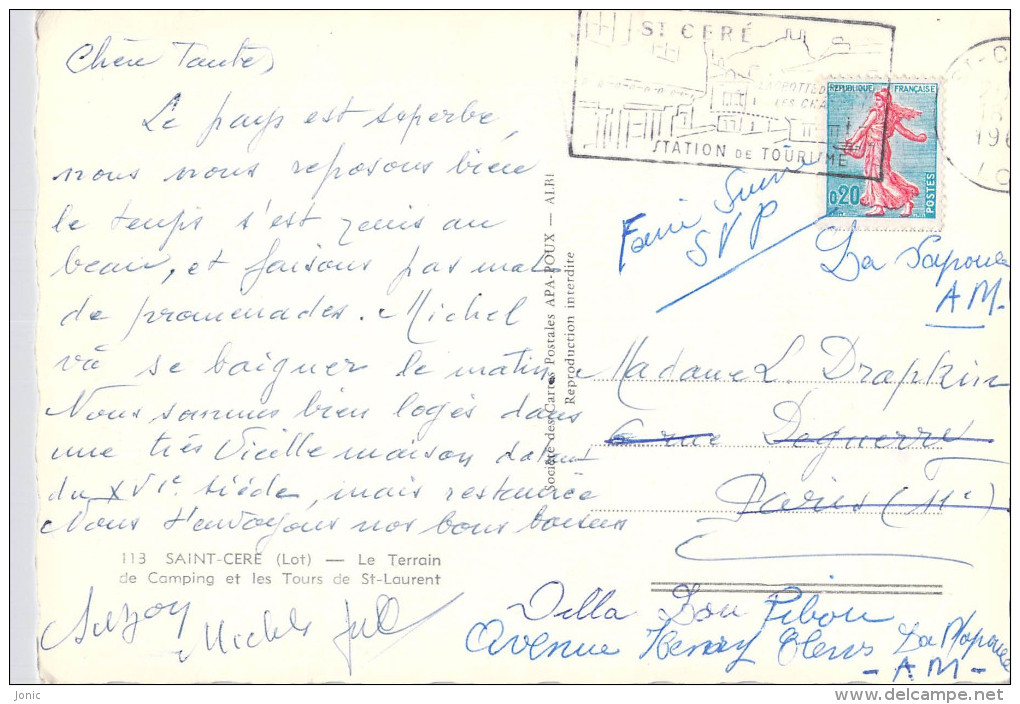 Chère Tante,
Le pays est superbe,
nous nous reposons bien
le temps s'est remis au
beau, et faisons pas mal
de promenades. Michel
và se baigner le matin.
Nous sommes bien logés dans
une très Vieille maison datant
du XVIe siècle, mais restaurée
Nous t'envoyons nos bons baisers
113 SAINT-CERÉ (Lot) — Le Terrain
de Camping et les Tours de St-Laurent
Michel
Société des Cartes Postales APA-POUX — ALBI
Reproduction interdite
ST CERÉ
STATION DE TOURISME
REPUBLIQUE FRANÇAISE
0,20
POSTES
Faire Suivre
SVP
La Napoule
A.M-
Madame L. Drapkin
6 rue Daguerre
Paris (14e)
Villa Lou Pibou
Avenue Henry Clews La Napoule
- AM -
Jonic
delcampe.net